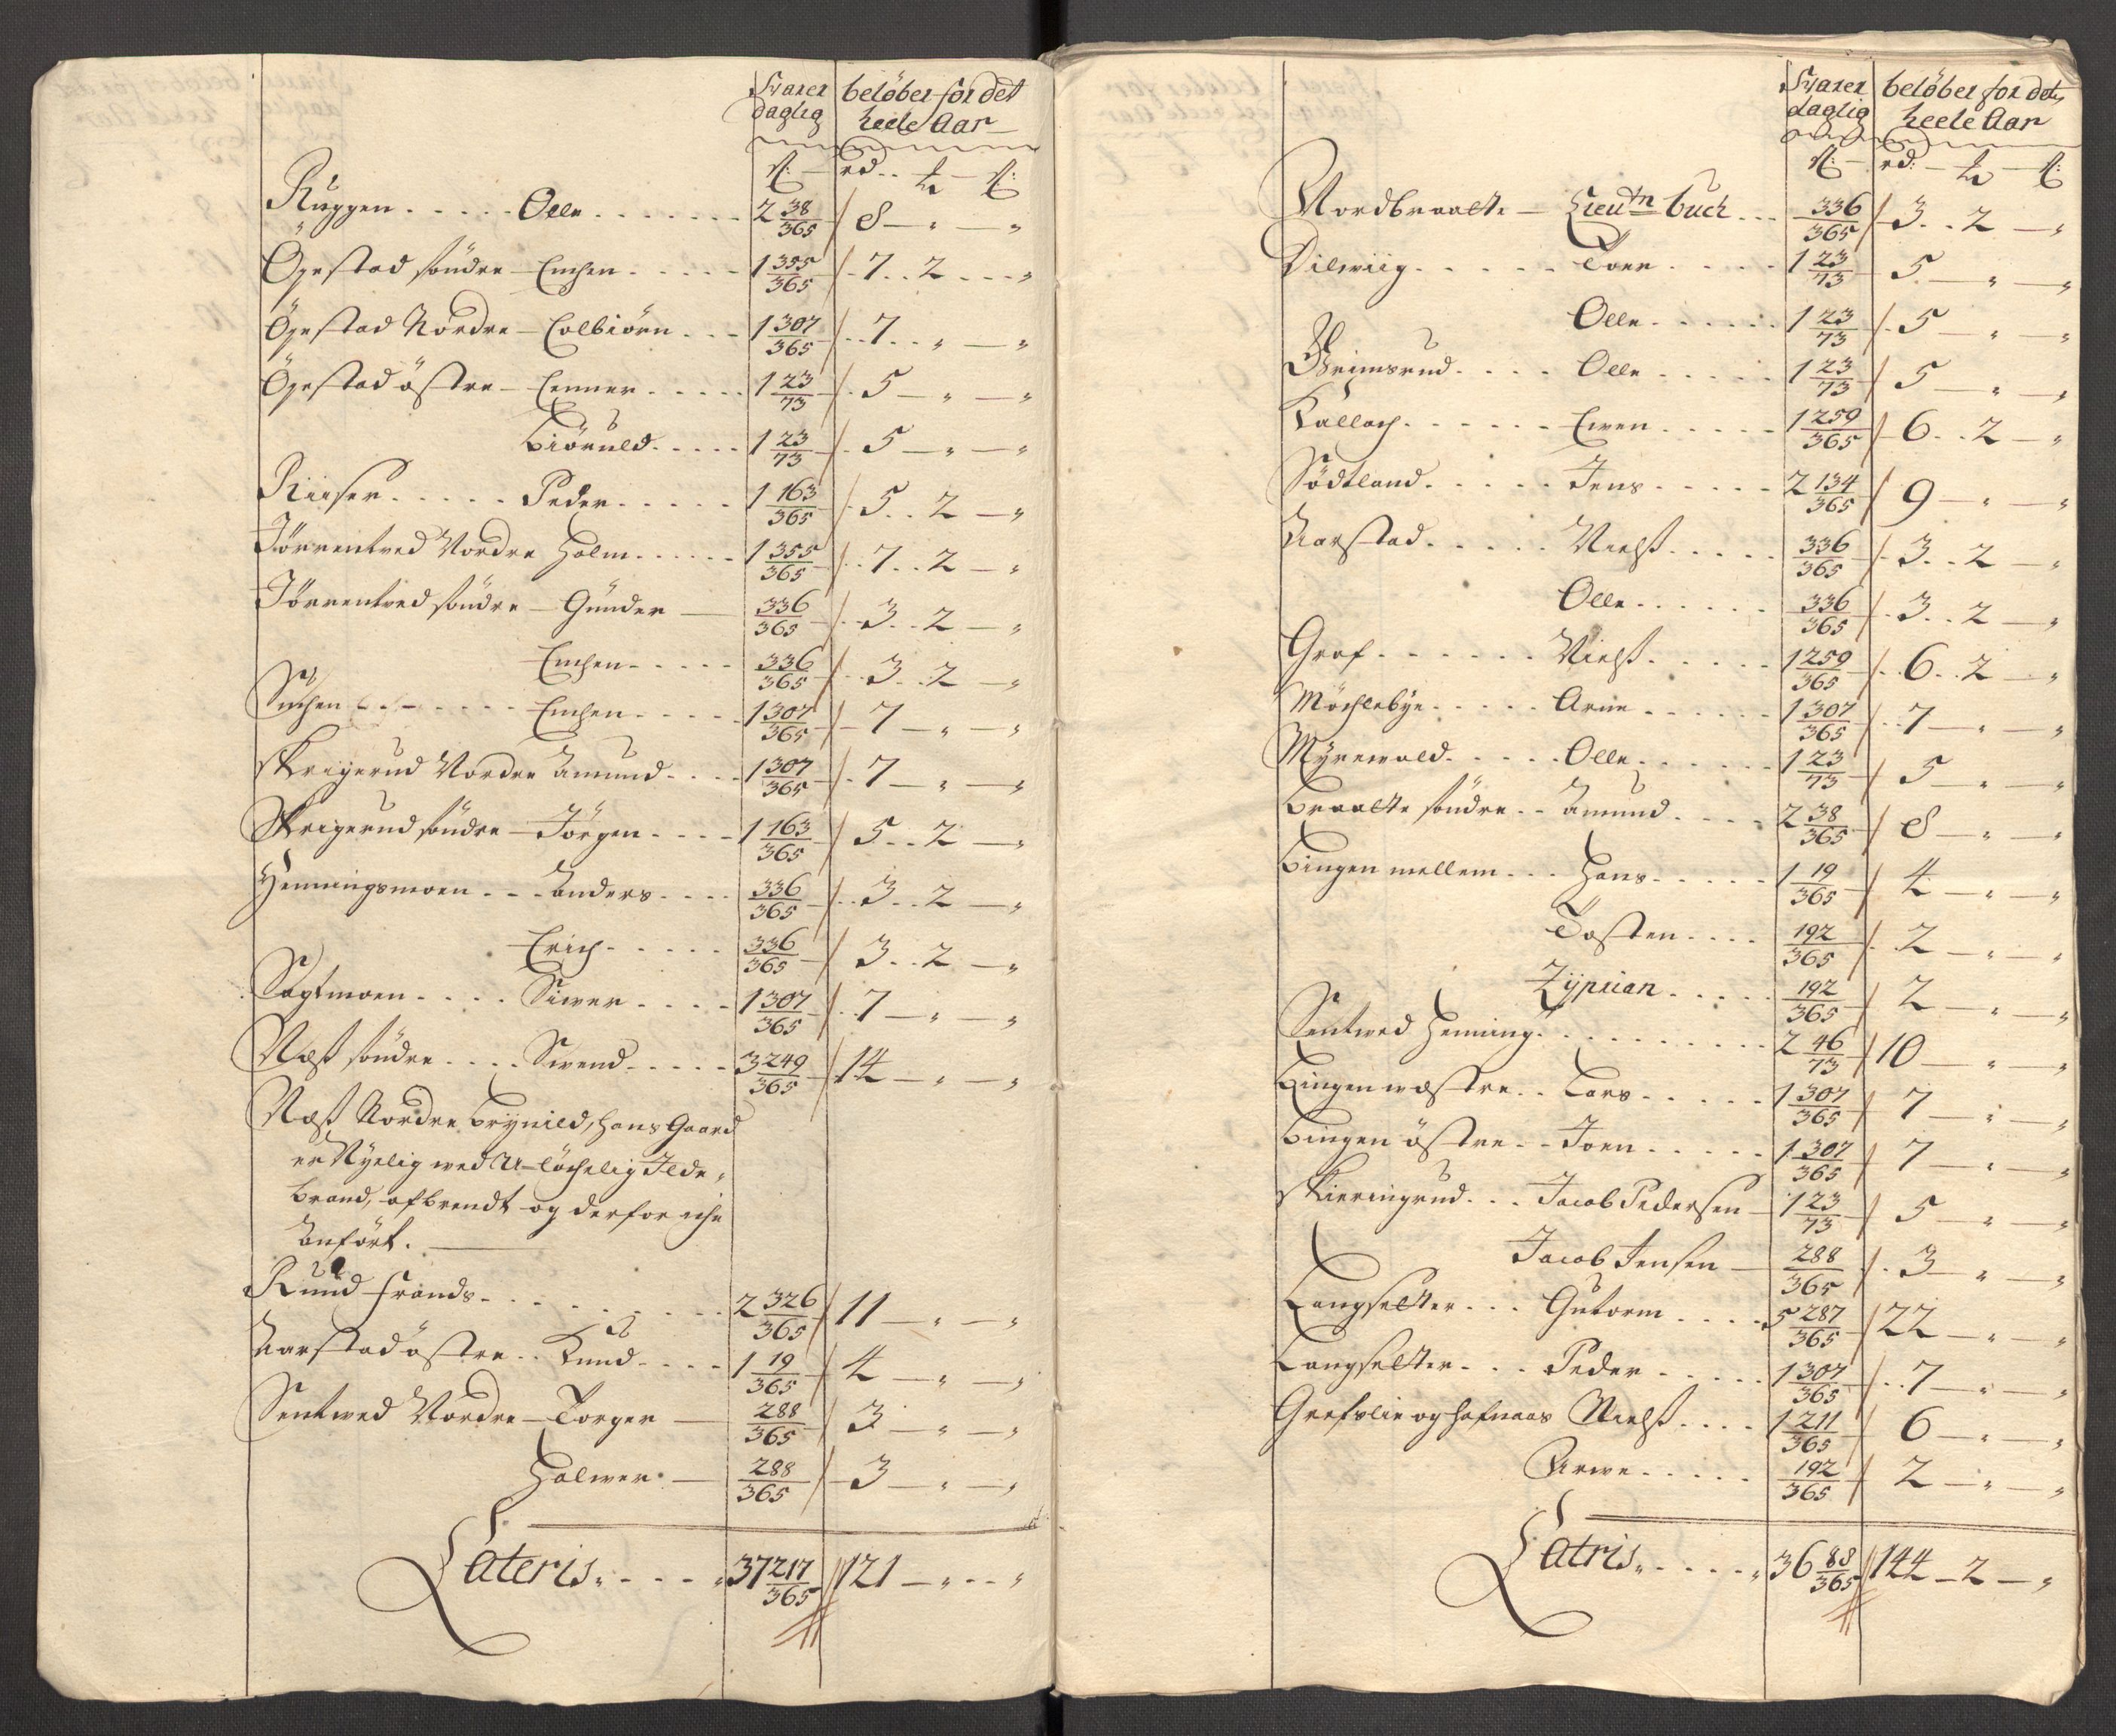 Svarer beløber for det
daglig heele Aar
ß: rd ß:
Ruggen Olle 2 38/365 8 — " — "
Øgestad søndre Emhen 1 355/365 7 . . 2 — "
Øgestad Nordre Colbiørn 1 307/365 7 . . " — "
Øgestad østre Tenner 1 23/73 5 — " — "
Biønuld 1 23/73 5 — " — "
Riiser Peder 1 163/365 5 . . 2 — "
Tørrentved Nordre Holm 1 355/365 7 . . 2 — "
Tørrentved søndre Gunder 336/365 3 . . 2 — "
Emhen 336/365 3 . . 2 — "
Emhen 1 307/365 7 — " — "
Skrigerud Nordre Amund 1 307/365 7 — " — "
Skrigerud søndre Jørgen 1 163/365 5 . . 2 — "
Henningsmoen Anders 336/365 3 . . 2 — "
Erich 336/365 3 . . 2 — "
Sagtmoen Siwer 1 307/365 7 — " — "
Næß søndre Swend 3 249/365 14 — " — "
Næß Nordre Brynild, hans Gaard
er Nyelig wed U-løchelig Ilde,
brand, afbrendt og derfor iche
Anført.
Ruud Frands 2 326/365 11 — " — "
Aarstad østre Knud 1 19/365 4 — " — "
Sentwed Nordre Torger 288/365 3 — " — "
Halwer 288/365 3 — " — "
Lateris 37 217/365 121 — " — "
Svarer beløber for det
daglig heele Aar
ß: rd: ß:
Nordbraatte Lieutn Buch 336/365 3 . . 2 — "
Dilwiig Tore 1 23/73 5 — " — "
Olle 1 23/73 5 — " — "
Grimsrud Olle 1 23/73 5 — " — "
Kallach Ewen 1 259/365 6 . . 2 — "
Sødtland Jens 2 134/365 9 — " — "
Aarstad Nielß 336/365 3 . . 2 — "
Olle 336/365 3 . . 2 — "
Graf Nielß 1 259/365 6 . . 2 — "
Møchlebye Arne 1 307/365 7 — " — "
Myrewold Olle 1 23/73 5 — " — "
Braatte søndre Amund 2 38/365 8 — " — "
Bingen mellem Hans 1 19/365 4 — " — "
Tosten 192/365 2 — " — "
Zyprian 192/365 2 — " — "
Sentwed Henning 2 46/73 10 — " — "
Bingen wæstre Lars 1 307/365 7 — " — "
Bingen østre Joen 1 307/365 7 — " — "
Skieringrud Jacob Pedersen 1 23/73 5 — " — "
Jacob Jensen 288/365 3 — " — "
Langseltter Gutorm 5 287/365 22 — " — "
Langseltter Peder 1 307/365 7 — " — "
Grafslie og Hafnaas Nielß 1 211/365 6 — " — "
Arwe 192/365 2 — " — "
Latris 36 88/365 144 — 2 — "